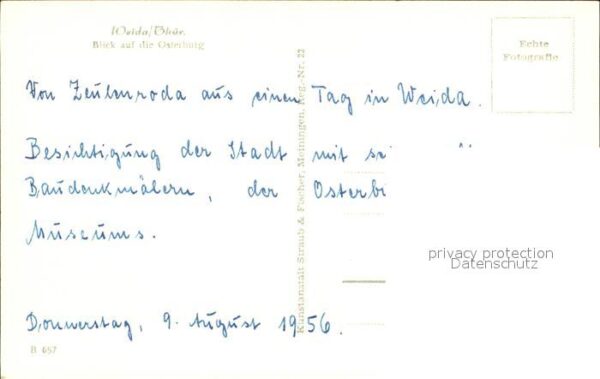 Weida/Thür.
Blick auf die Osterburg
Echte
Fotografie
Von Zeulenroda aus einen Tag in Weida.
Besichtigung der Stadt mit
Baudenkmälern, der
Museums.
Donnerstag, 9. August 1956.
B 657
Kunstanstalt Straub & Fischer, Meiningen, Reg.-Nr. 22
privacy protection
Datenschutz